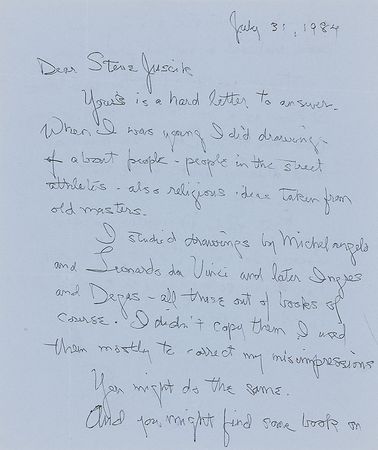 July 31, 1984
Dear Steve Juscik
Yours is a hard letter to answer.
When I was young I did drawing-
of about people - people in the street
athletes - also religious ideas taken from
old masters.
I studied drawings by Michelangelo
and Leonardo da Vinci and later Ingres
and Degas - all these out of books of
course. I didn't copy them I used
them mostly to correct my misimpressions
You might do the same.
And you might find some book on